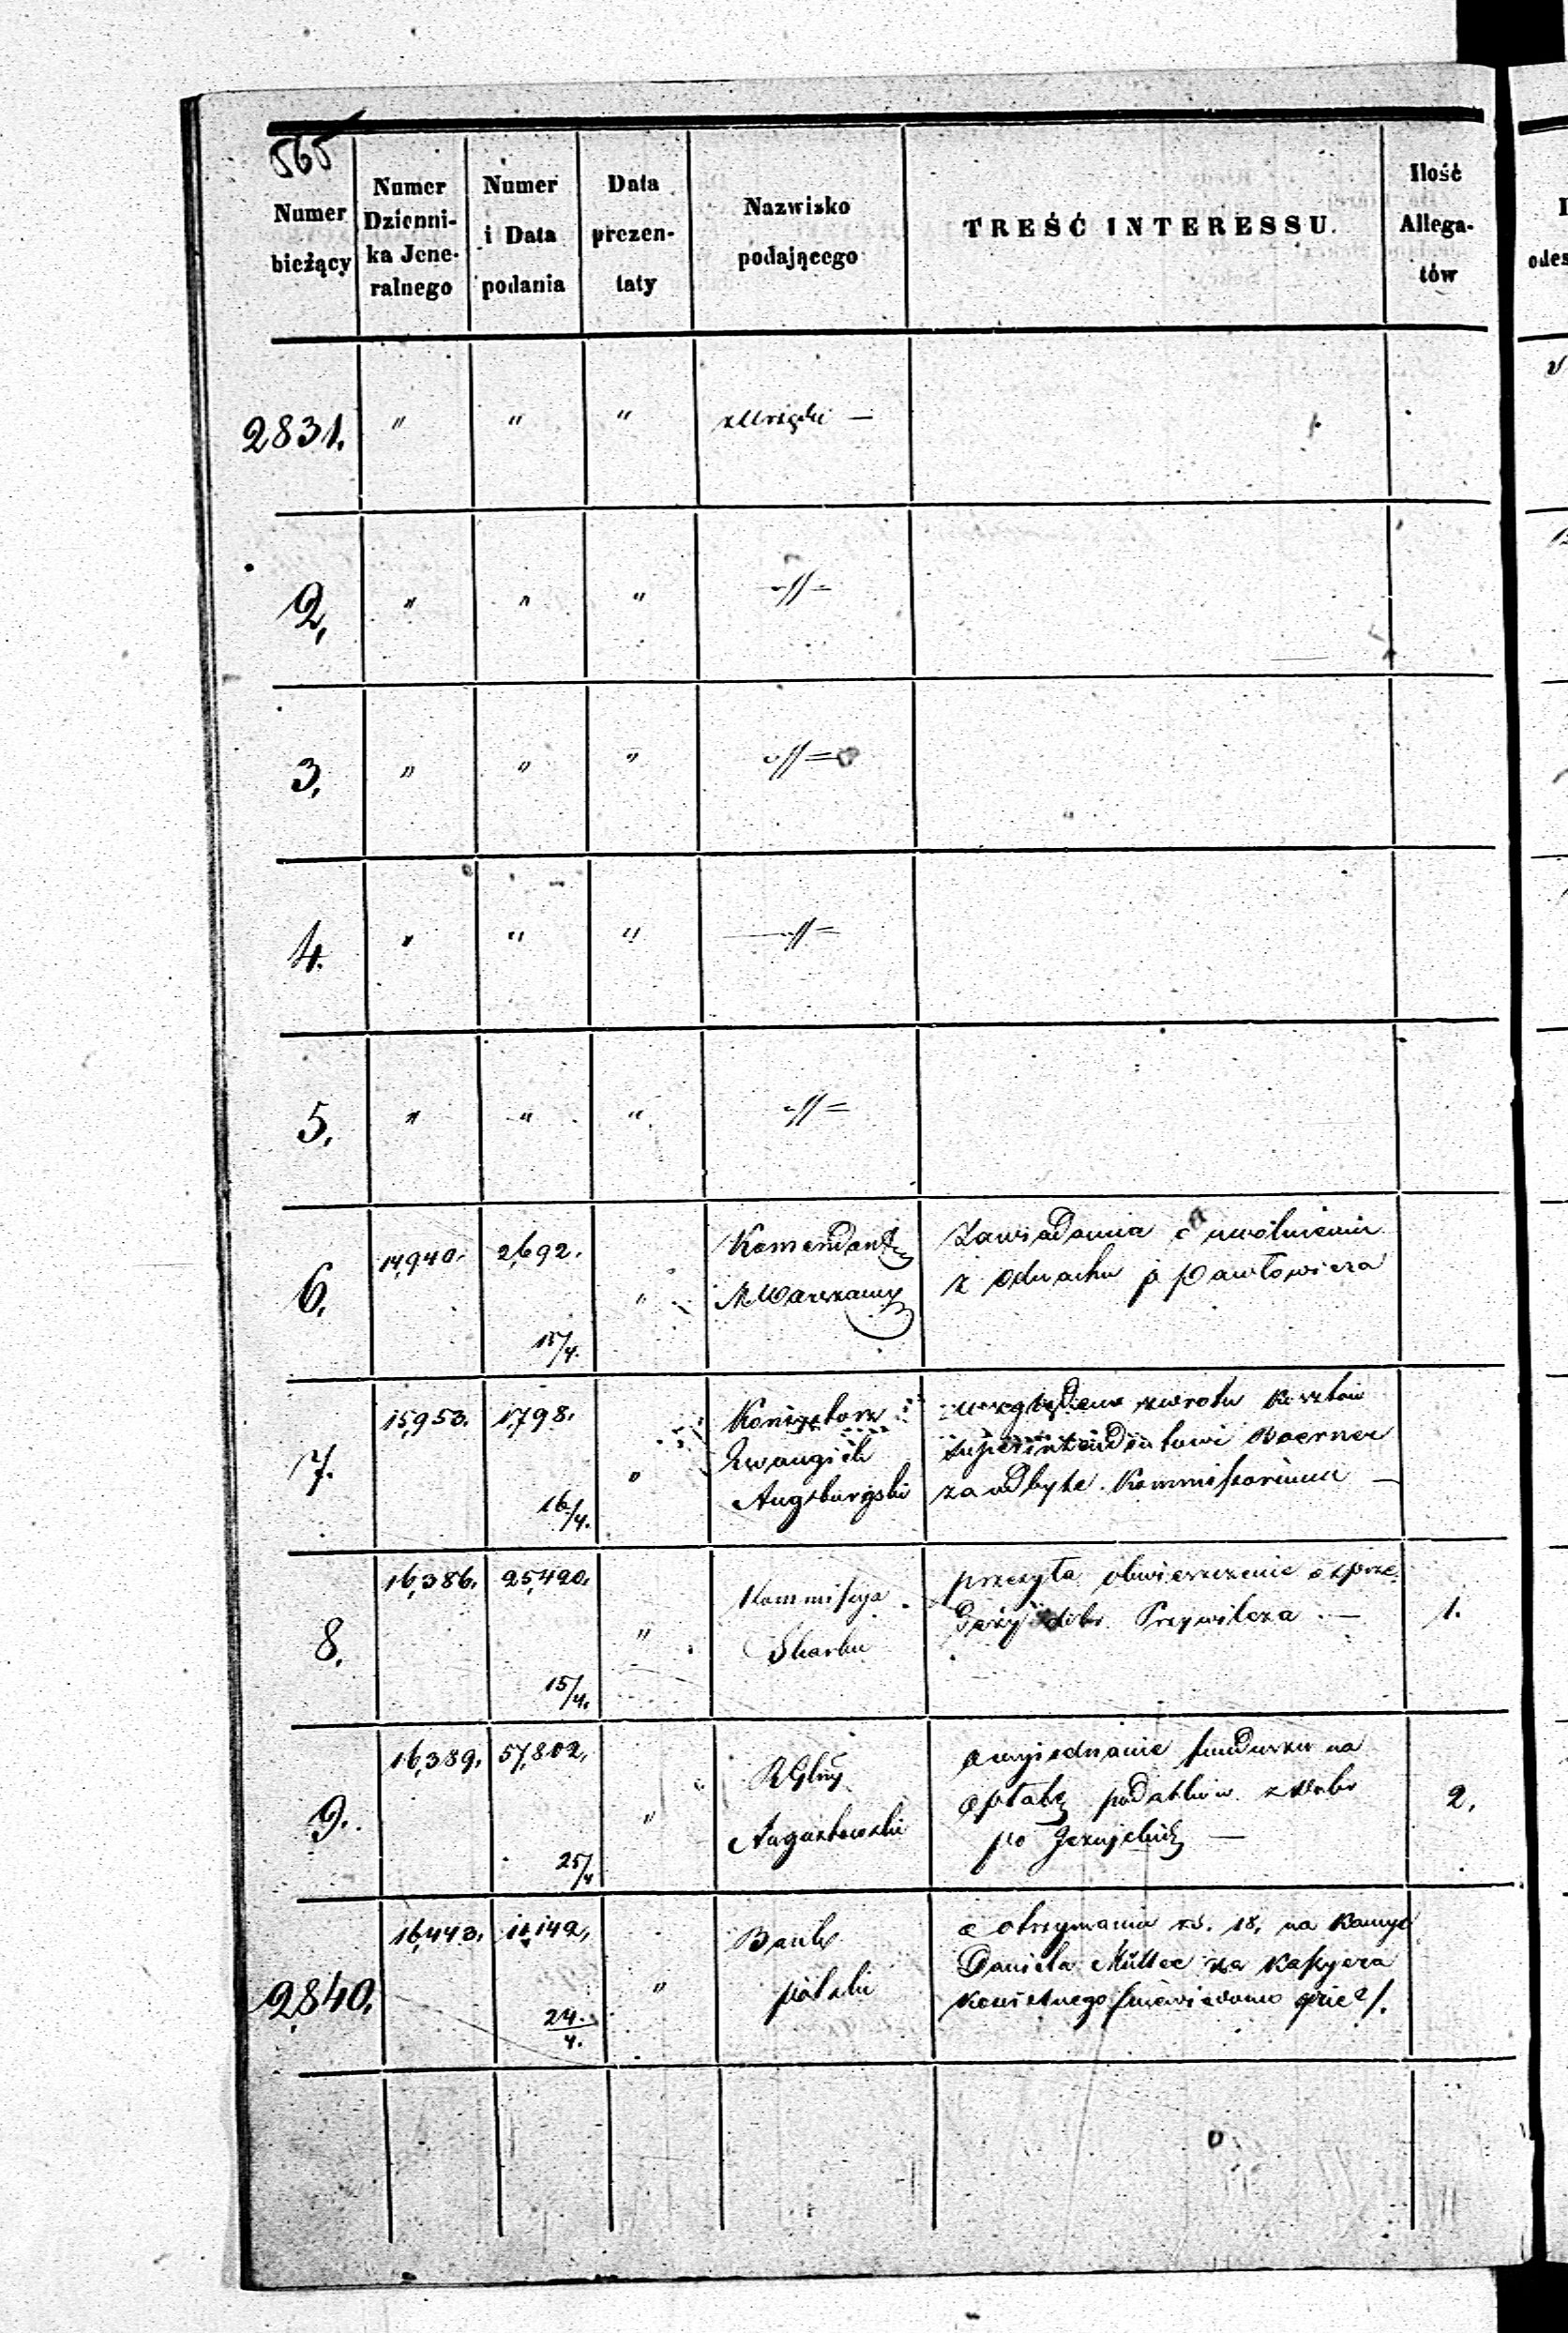 565
Numer bieżący
Numer Dzienni- ka Jene- ralnego
Numer i Data podania
Data prezen- taty
Nazwisko podającego
TREŚĆ INTERESSU.
Ilość Allega- tów
2831. " " " z Urzędu —
2, " " " -//-
3, " " " -//=
4. " " " —//=
5, " " " -//=
6, 14,940. 2,692. 15/4. "
Komendant
M Warszawy
Zawiadamia o uwolnieniu
z odwachu p Pawłowicza
7. 15,953. 1,798. 16/4. "
Konsystorz
Ewangich
Augsburgski
względem zwrotu kosztów
Superintendentowi Boerner
za odbyte Kommissorium —
8. 16,386. 25,420. 15/4. "
Kommissya
Skarbu
przesyła obwieszczenie o sprze-
daży dobr —
1.
9. 16,389. 57,802, 25/4 "
RGlny
Augustowski
o wyjednanie funduszu na
opłatę podatków z dobr
po —
2,
2840. 16,443. 11,142, 24./4. "
Bank
polski
o otrzymaniu rs. 18, na
Daniela Müller za Kassyera